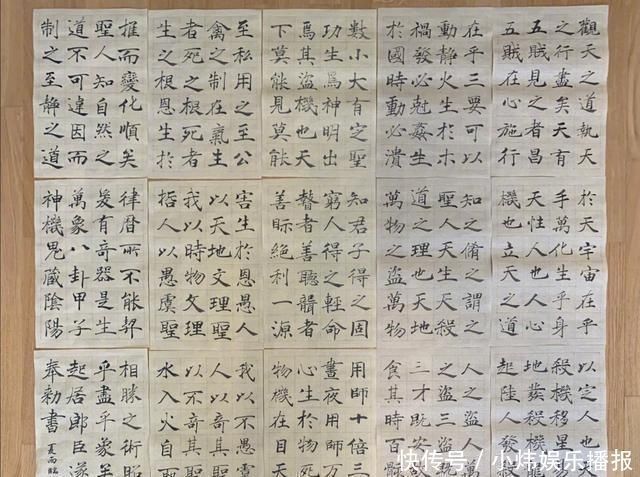 觀天之道執天
之行盡矣天有
五賊見之者昌
五賊在心施行
於天宇宙在乎
手萬化生乎身
天性人也人心
機也立天之道
以定人也天
殺機移星
地發殺機
起陸人發
在乎三要可以
動靜火生於木
禍發必剋姦生
於國時動必潰
知之脩之謂之
聖人天生天殺
道之理也天地
萬物之盜萬物
人之盜人萬
之盜三盜
三才既安
食其時百骸
數小大有定聖
功生焉神明出
焉其盜機也天
下莫能見莫能
知君子得之固
窮人得之輕命
瞽者善聽聾者
善眎絕利一源
用師十倍三
晝夜用師万
心生於物死
物機在目天
至私用之至公
禽之制在氣生
者死之根死者
生之根恩生於
害生於恩愚人
以天地文理聖
我以時物文理
哲人以愚虞聖
我以不愚
人以奇其
以不奇其
水入火自
推而變化順矣
聖人知自然之
道不可違因而
制之至靜之道
律曆所不能契
爰有奇器是生
萬象八卦甲子
神機鬼藏陰陽
相勝之術昭
乎盡乎象
起居郎臣遂
奉勑書
夏雨臨
快传号／小炜娱乐播报